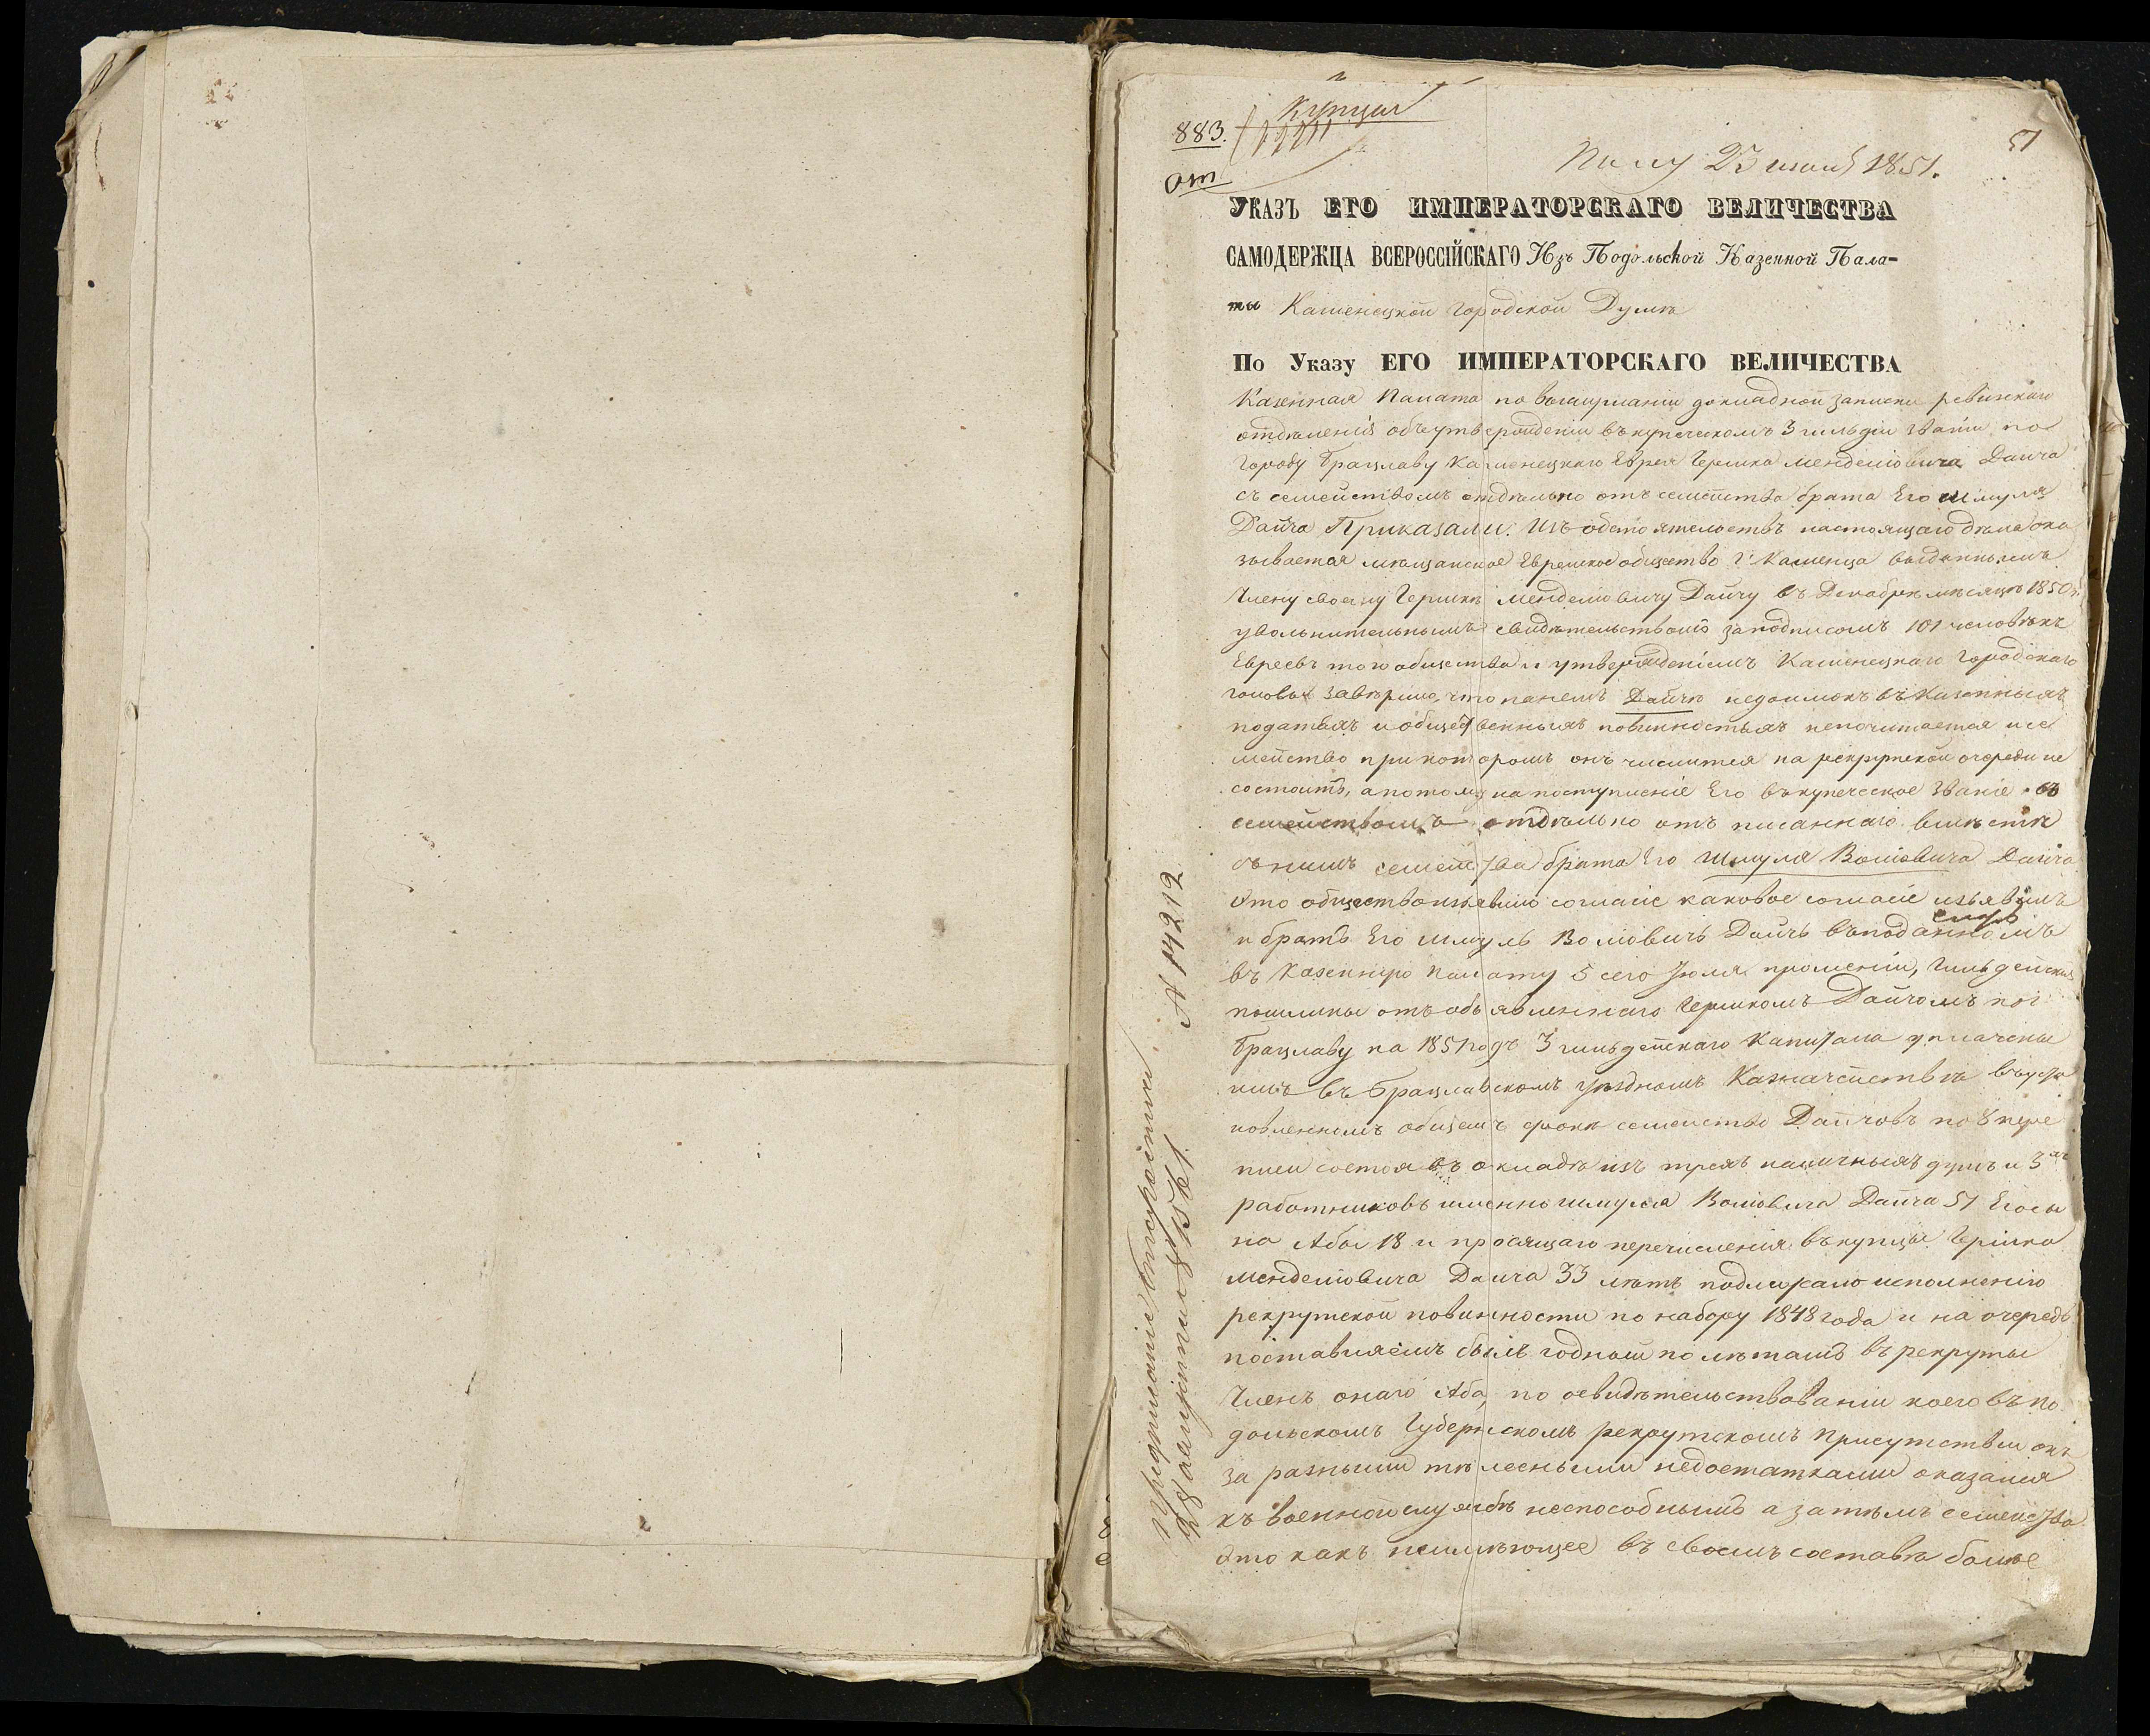 883.
Купцы
От
Полу 23 июля 1851.
51
УКАЗЪ ЕГО ИМПЕРАТОРСКАГО ВЕЛИЧЕСТВА
САМОДЕРЖЦА ВСЕРОССІЙСКАГО Изъ Подольской Казенной Пала-
ты Каменецкой Городской Думѣ
По Указу ЕГО ИМПЕРАТОРСКАГО ВЕЛИЧЕСТВА
Казенная Палата по выслушаніи докладной записки ревизскаго
отдѣленія объ утвержденіи въ купеческомъ 3 гильдіи званіи по
городу Брацлаву Каменецкаго Еврея Гершка Менделіовича Дайча
съ семействомъ отдѣльно отъ семейства брата Его Шмуля
Дайча Приказали. Изъ обстоятельствъ настоящаго дѣла ока
зывается мѣщанское Еврейское общество г. Каменца выданнымъ
Члену своему Гершкѣ Менделіовичу Дайчу въ Декабрѣ мѣсяцѣ 1850 г.
увольнительнымъ свидѣтельствомъ за подписомъ 101 человѣкъ
Евреевъ того общества и утвержденіемъ Каменецкаго Городскаго
головы завѣрило, что на немъ Дайчѣ недоимокъ въ казенныхъ
податяхъ и общественныхъ повинностяхъ непочитается и се
мейство при которомъ онъ числится на рекрутской очереди не
состоитъ, а потому на поступленіе Его въ купеческое званіе съ
семействомъ отдѣльно отъ писаннаго вмѣстѣ
съ нимъ семейства брата Его Шмуля Воліовича Дайча
это общество изъявило согласіе каковое согласіе изъявилъ
и братъ Его Шмуль Воліовичъ Дайчъ въ поданномъ
въ Казенную Палату 5 сего Іюля прошеніи, Гильдейскія
пошлины отъ объявленнаго Гершкомъ Дайчомъ по г.
Брацлаву на 1851 годъ 3 гильдейскаго Капитала уплачены
имъ въ Брацлавскомъ уѣздномъ Казначействѣ въ уста
новленномъ общемъ срокѣ семейство Дайчовъ по 8 пере
писи состоя въ окладѣ изъ трехъ наличныхъ душъ и 3хъ
работниковъ именно Шмуля Воліовича Дайча 51 Его сы
на Абы 18 и просящаго перечисленія въ купцы Гершка
Менделіовича Дайча 33 лѣтъ подлежало исполненію
рекрутской повинности по набору 1848 года и на очередь
поставляемъ былъ годный по лѣтамъ въ рекруты
Членъ онаго Аба, по освидѣтельствованіи коего въ По
дольскомъ Губернскомъ рекрутскомъ Присутствіи онъ
за разными тѣлесными недостатками оказался
къ военной службѣ неспособнымъ а затѣмъ семейство
это какъ неимѣющее въ своемъ составѣ болѣе
№ 14212